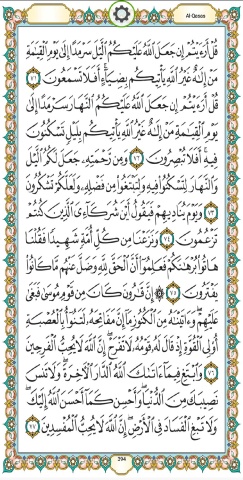 Al-Qasas
قُلْ أَرَءَيْتُمْ إِن جَعَلَ ٱللَّهُ عَلَيْكُمُ ٱلَّيْلَ سَرْمَدًا إِلَىٰ يَوْمِ ٱلْقِيَٰمَةِ
مَنْ إِلَٰهٌ غَيْرُ ٱللَّهِ يَأْتِيكُم بِضِيَآءٍ أَفَلَا تَسْمَعُونَ ٧١
قُلْ أَرَءَيْتُمْ إِن جَعَلَ ٱللَّهُ عَلَيْكُمُ ٱلنَّهَارَ سَرْمَدًا إِلَىٰ
يَوْمِ ٱلْقِيَٰمَةِ مَنْ إِلَٰهٌ غَيْرُ ٱللَّهِ يَأْتِيكُم بِلَيْلٍ تَسْكُنُونَ
فِيهِ أَفَلَا تُبْصِرُونَ ٧٢ وَمِن رَّحْمَتِهِۦ جَعَلَ لَكُمُ ٱلَّيْلَ
وَٱلنَّهَارَ لِتَسْكُنُوا۟ فِيهِ وَلِتَبْتَغُوا۟ مِن فَضْلِهِۦ وَلَعَلَّكُمْ تَشْكُرُونَ
٧٣ وَيَوْمَ يُنَادِيهِمْ فَيَقُولُ أَيْنَ شُرَكَآءِىَ ٱلَّذِينَ كُنتُمْ
تَزْعُمُونَ ٧٤ وَنَزَعْنَا مِن كُلِّ أُمَّةٍ شَهِيدًا فَقُلْنَا
هَاتُوا۟ بُرْهَٰنَكُمْ فَعَلِمُوٓا۟ أَنَّ ٱلْحَقَّ لِلَّهِ وَضَلَّ عَنْهُم مَّا كَانُوا۟
يَفْتَرُونَ ٧٥ ۞ إِنَّ قَٰرُونَ كَانَ مِن قَوْمِ مُوسَىٰ فَبَغَىٰ
عَلَيْهِمْ وَءَاتَيْنَٰهُ مِنَ ٱلْكُنُوزِ مَآ إِنَّ مَفَاتِحَهُۥ لَتَنُوٓأُ بِٱلْعُصْبَةِ
أُو۟لِى ٱلْقُوَّةِ إِذْ قَالَ لَهُۥ قَوْمُهُۥ لَا تَفْرَحْ إِنَّ ٱللَّهَ لَا يُحِبُّ ٱلْفَرِحِينَ
٧٦ وَٱبْتَغِ فِيمَآ ءَاتَىٰكَ ٱللَّهُ ٱلدَّارَ ٱلْءَاخِرَةَ وَلَا تَنسَ
نَصِيبَكَ مِنَ ٱلدُّنْيَا وَأَحْسِن كَمَآ أَحْسَنَ ٱللَّهُ إِلَيْكَ
وَلَا تَبْغِ ٱلْفَسَادَ فِى ٱلْأَرْضِ إِنَّ ٱللَّهَ لَا يُحِبُّ ٱلْمُفْسِدِينَ ٧٧
394